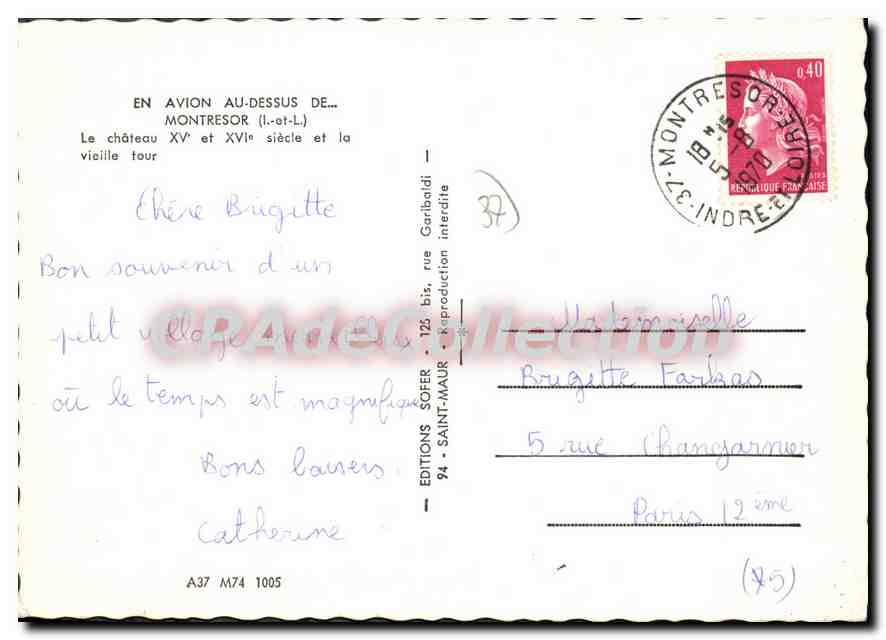 EN AVION AU-DESSUS DE...
MONTRESOR (I.-et-L.)
Le château XVe et XVIe siècle et la
vieille tour
Chère Brigitte
Bon souvenir d'un
petit village
où le temps est magnifique
Bons baisers.
Catherine
A37 M74 1005
EDITIONS SOFER - 125 bis, rue Garibaldi
94 - SAINT-MAUR - Reproduction interdite
37
0,40
POSTES
REPUBLIQUE FRANÇAISE
37-MONTRESOR
INDRE-ET-LOIRE
18H15
5-8
1970
Mademoiselle
Brigitte Farkas
5 rue Changarnier
Paris 12ème
(75)
CPAdeCollection